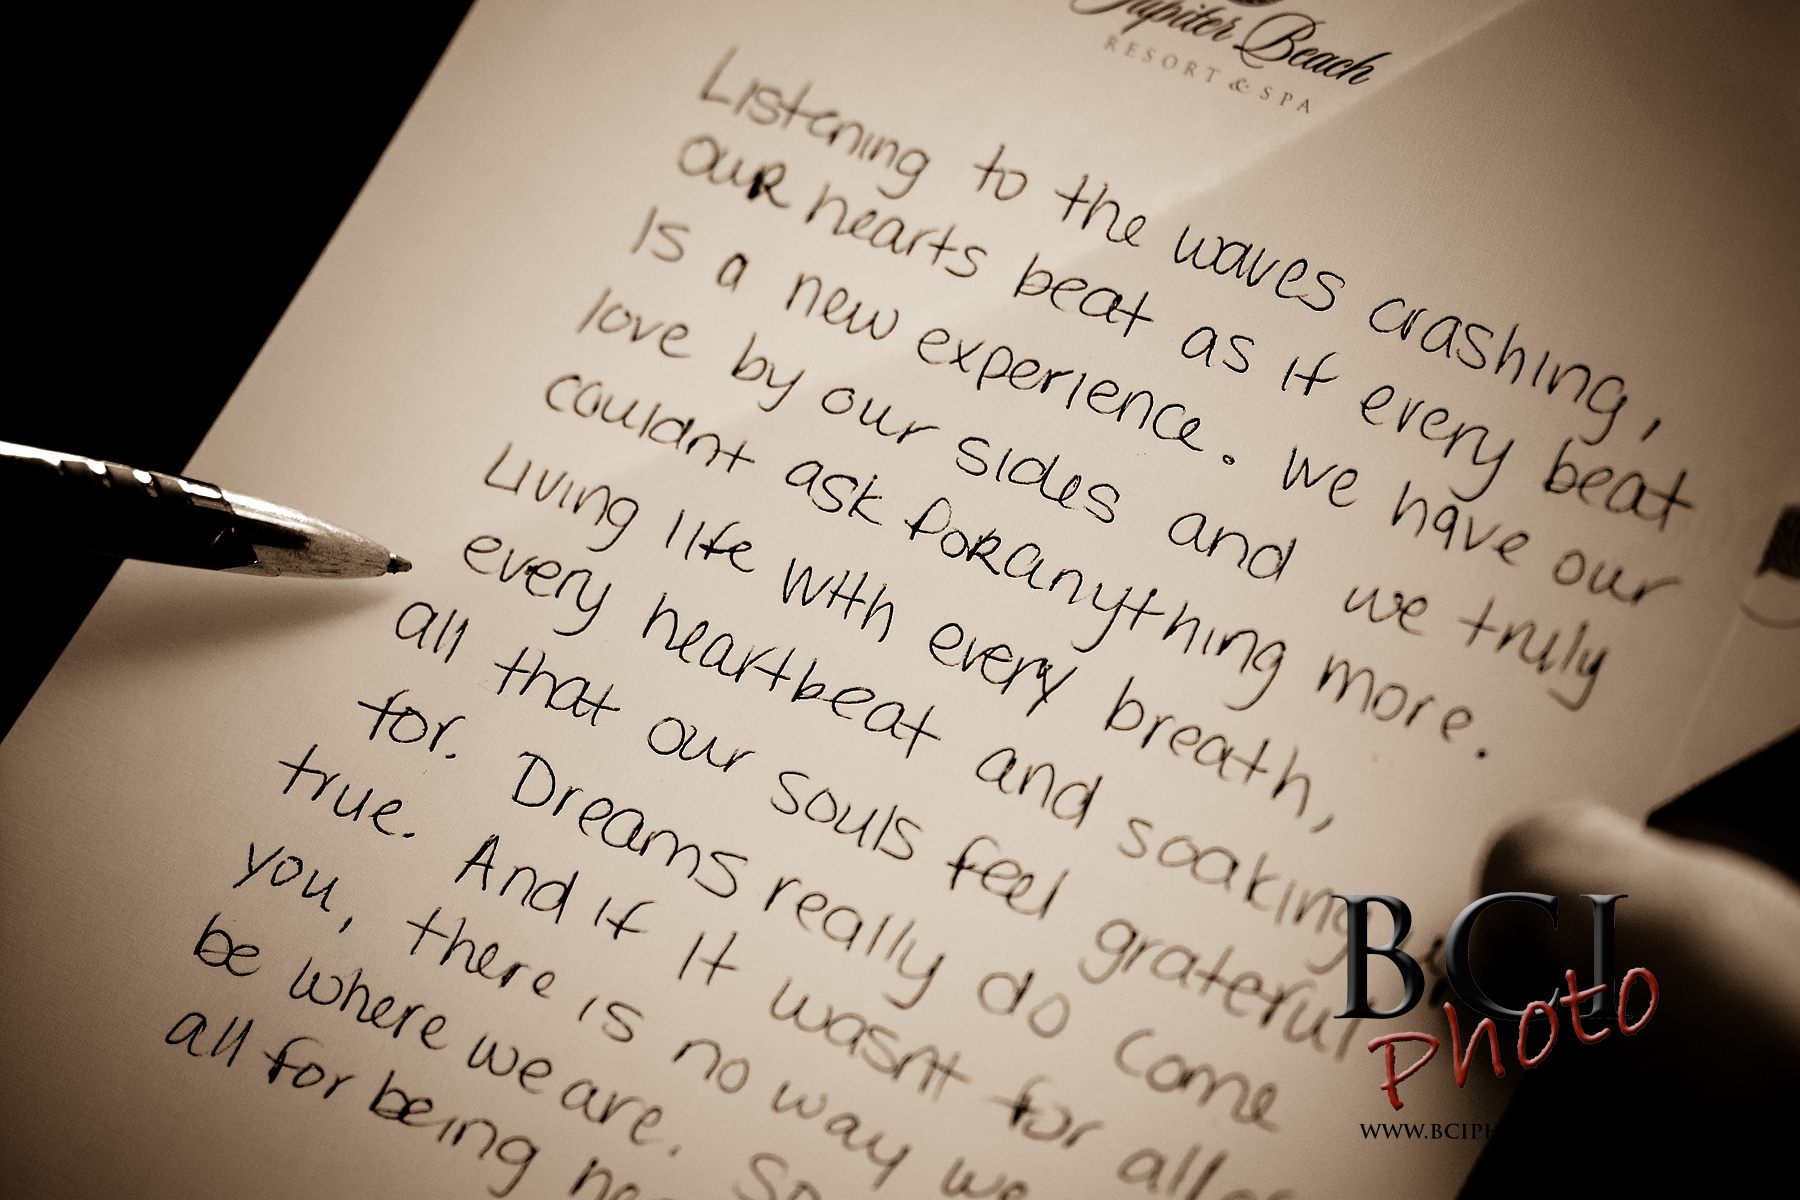 Jupiter Beach
RESORT & SPA
Listening to the waves crashing,
our hearts beat as if every beat
is a new experience. We have our
love by our sides and we truly
couldnt ask for anything more.
Living life with every breath,
every heartbeat and soaking
all that our souls feel grateful
for. Dreams really do come
true. And if it wasnt for all
you, there is no way we
be where we are.
all for being
BCI
Photo